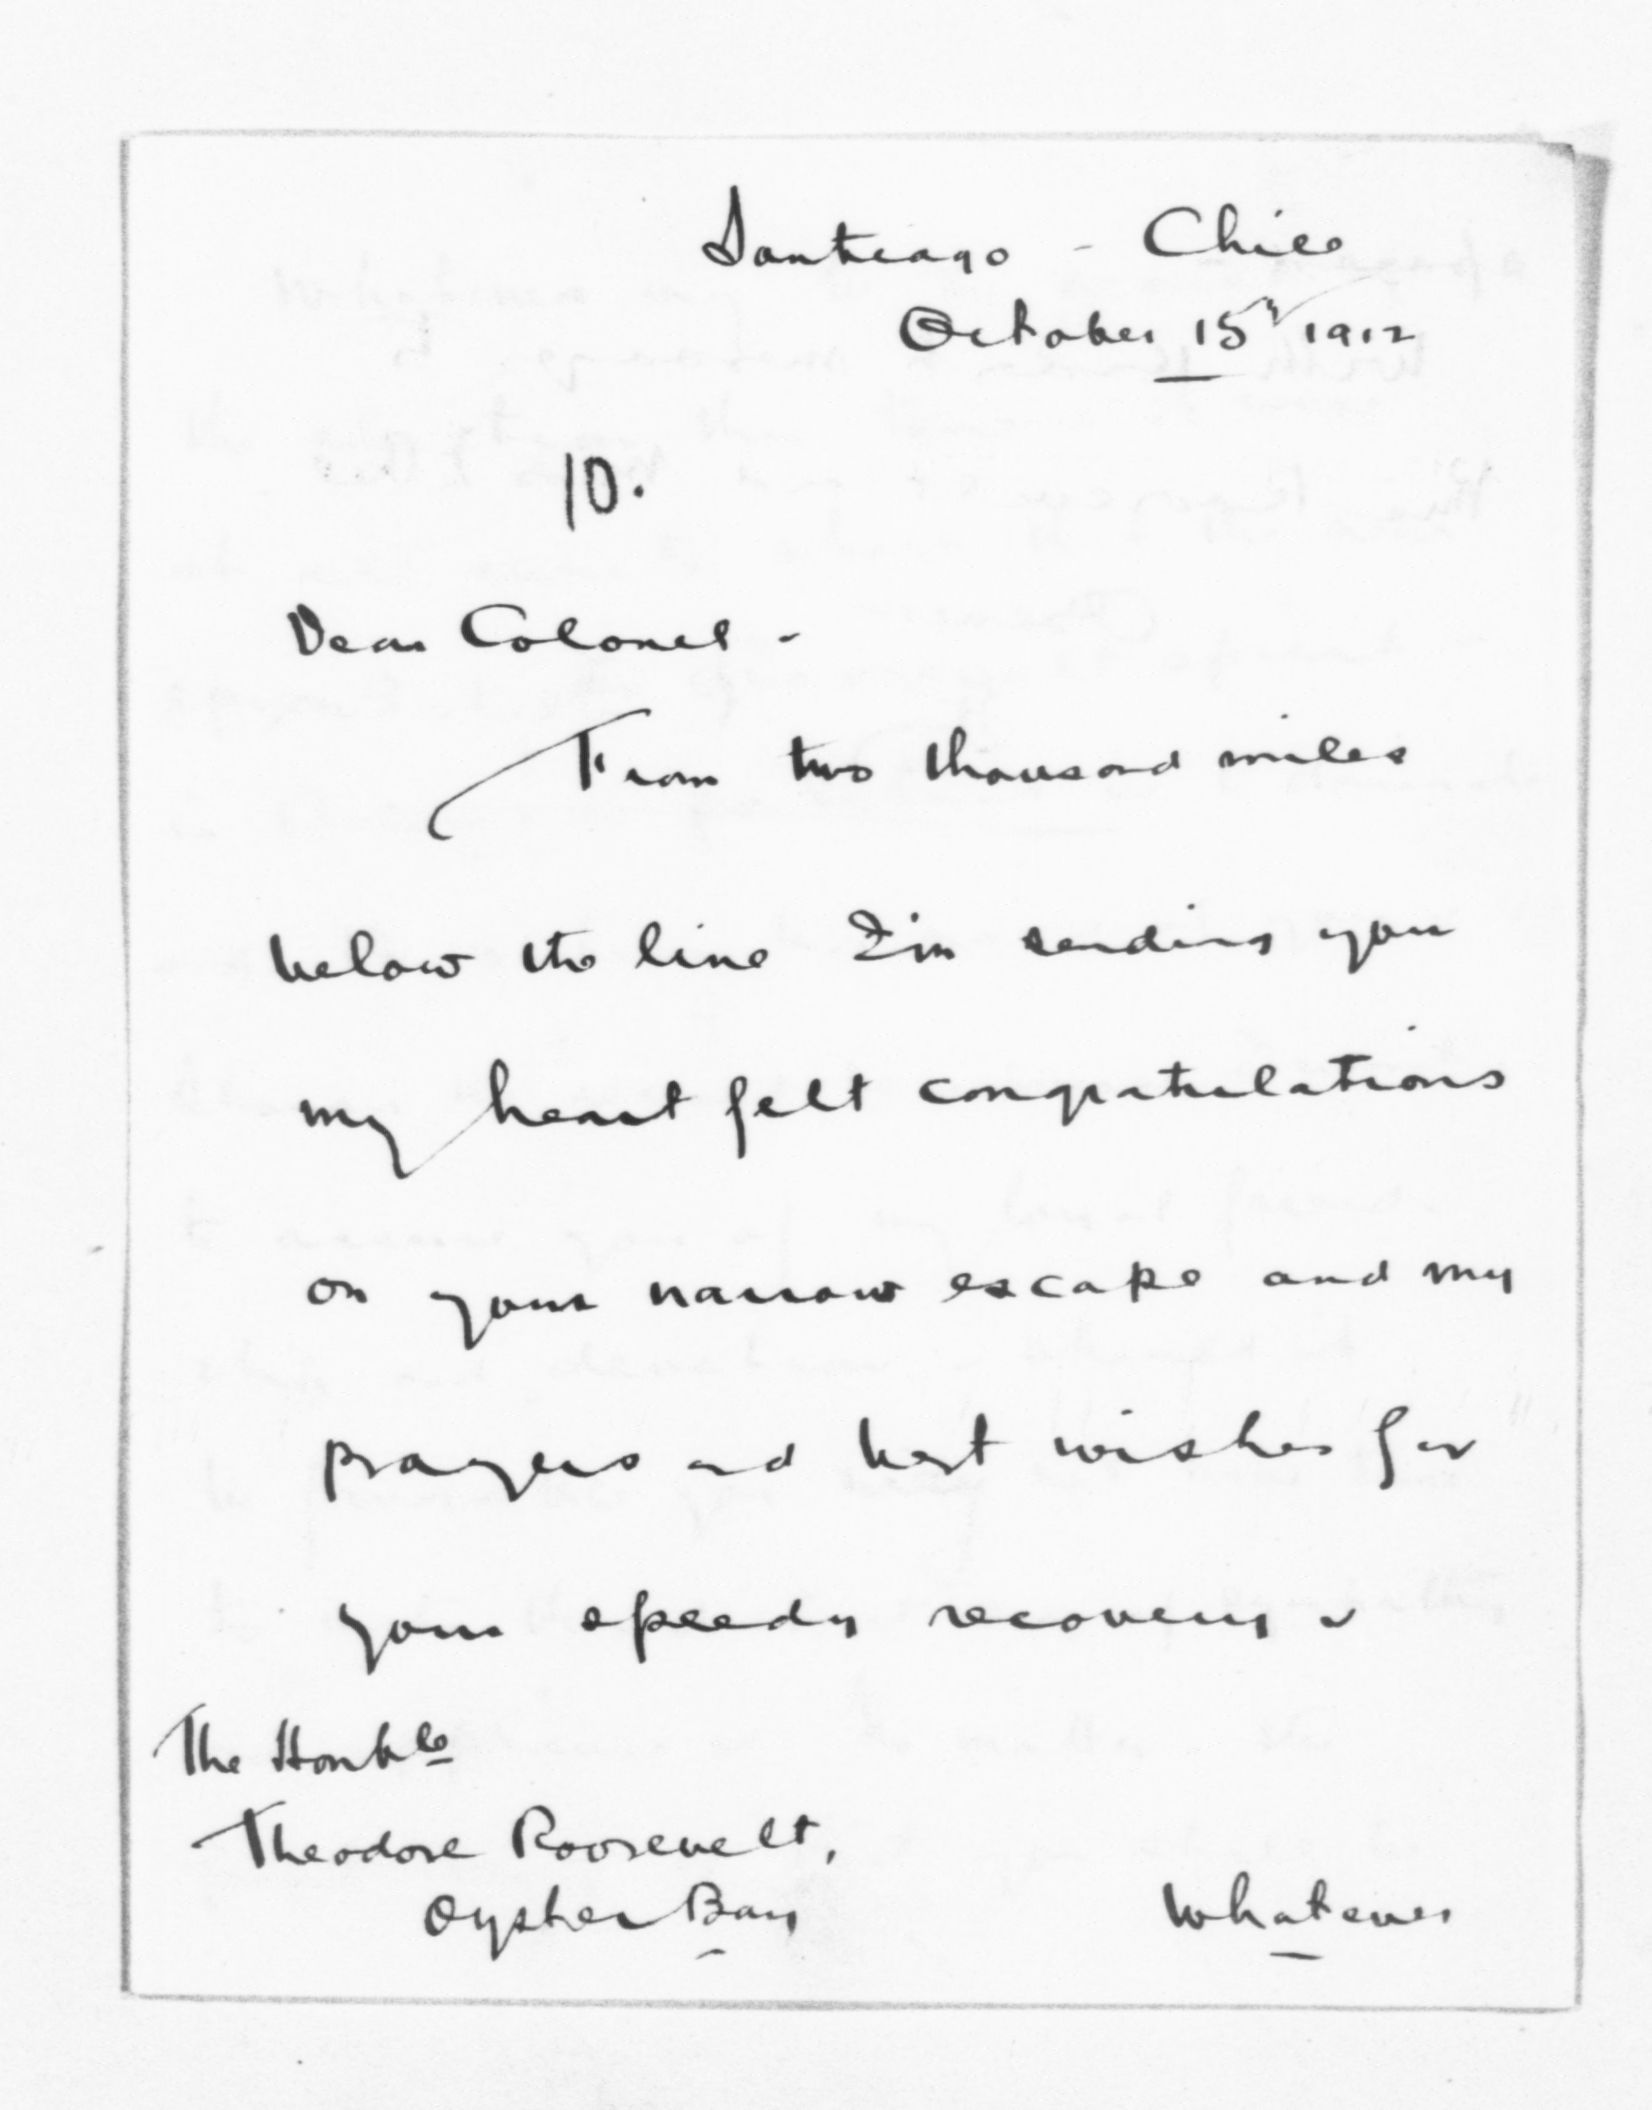 Santiago - Chile
October 15" 1912
10.
Dear Colonel -
From two thousand miles
below the line I'm sending you
my heart felt congratulations
on your narrow escape and my
prayers and best wishes for
your speedy recovery -
The Honble
Theodore Roosevelt,
Oyster Bay
Whatever